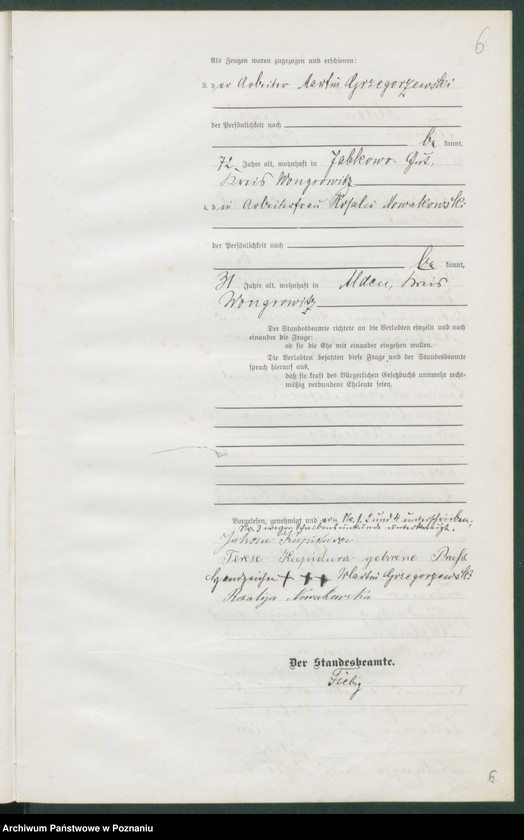 6
Als Zeugen waren zugezogen und erschienen:
3. der Arbeiter Martin Grzegorzewski
der Persönlichkeit nach
be kannt,
72 Jahre alt, wohnhaft in Jabkowo Gut,
Kreis Wongrowitz
4. die Arbeiterfrau Rosalie Nowakowski
der Persönlichkeit nach
be kannt,
31 Jahre alt, wohnhaft in Alden, Kreis
Wongrowitz
Der Standesbeamte richtete an die Verlobten einzeln und nach
einander die Frage:
ob sie die Ehe mit einander eingehen wollen.
Die Verlobten bejahten diese Frage und der Standesbeamte
sprach hierauf aus,
daß sie kraft des Bürgerlichen Gesetzbuchs nunmehr recht-
mäßig verbundene Eheleute seien.
Vorgelesen, genehmigt und von No. 1, 2 und 4 unterschrieben,
No. 3 wegen Schreibensunkunde unterkreuzt.
Johann Kupidura
Terese Kupidura geborene
Handzeichen +++ Martin Grzegorzewski
Rozalija Nowakowska
Der Standesbeamte.
6
Archiwum Państwowe w Poznaniu